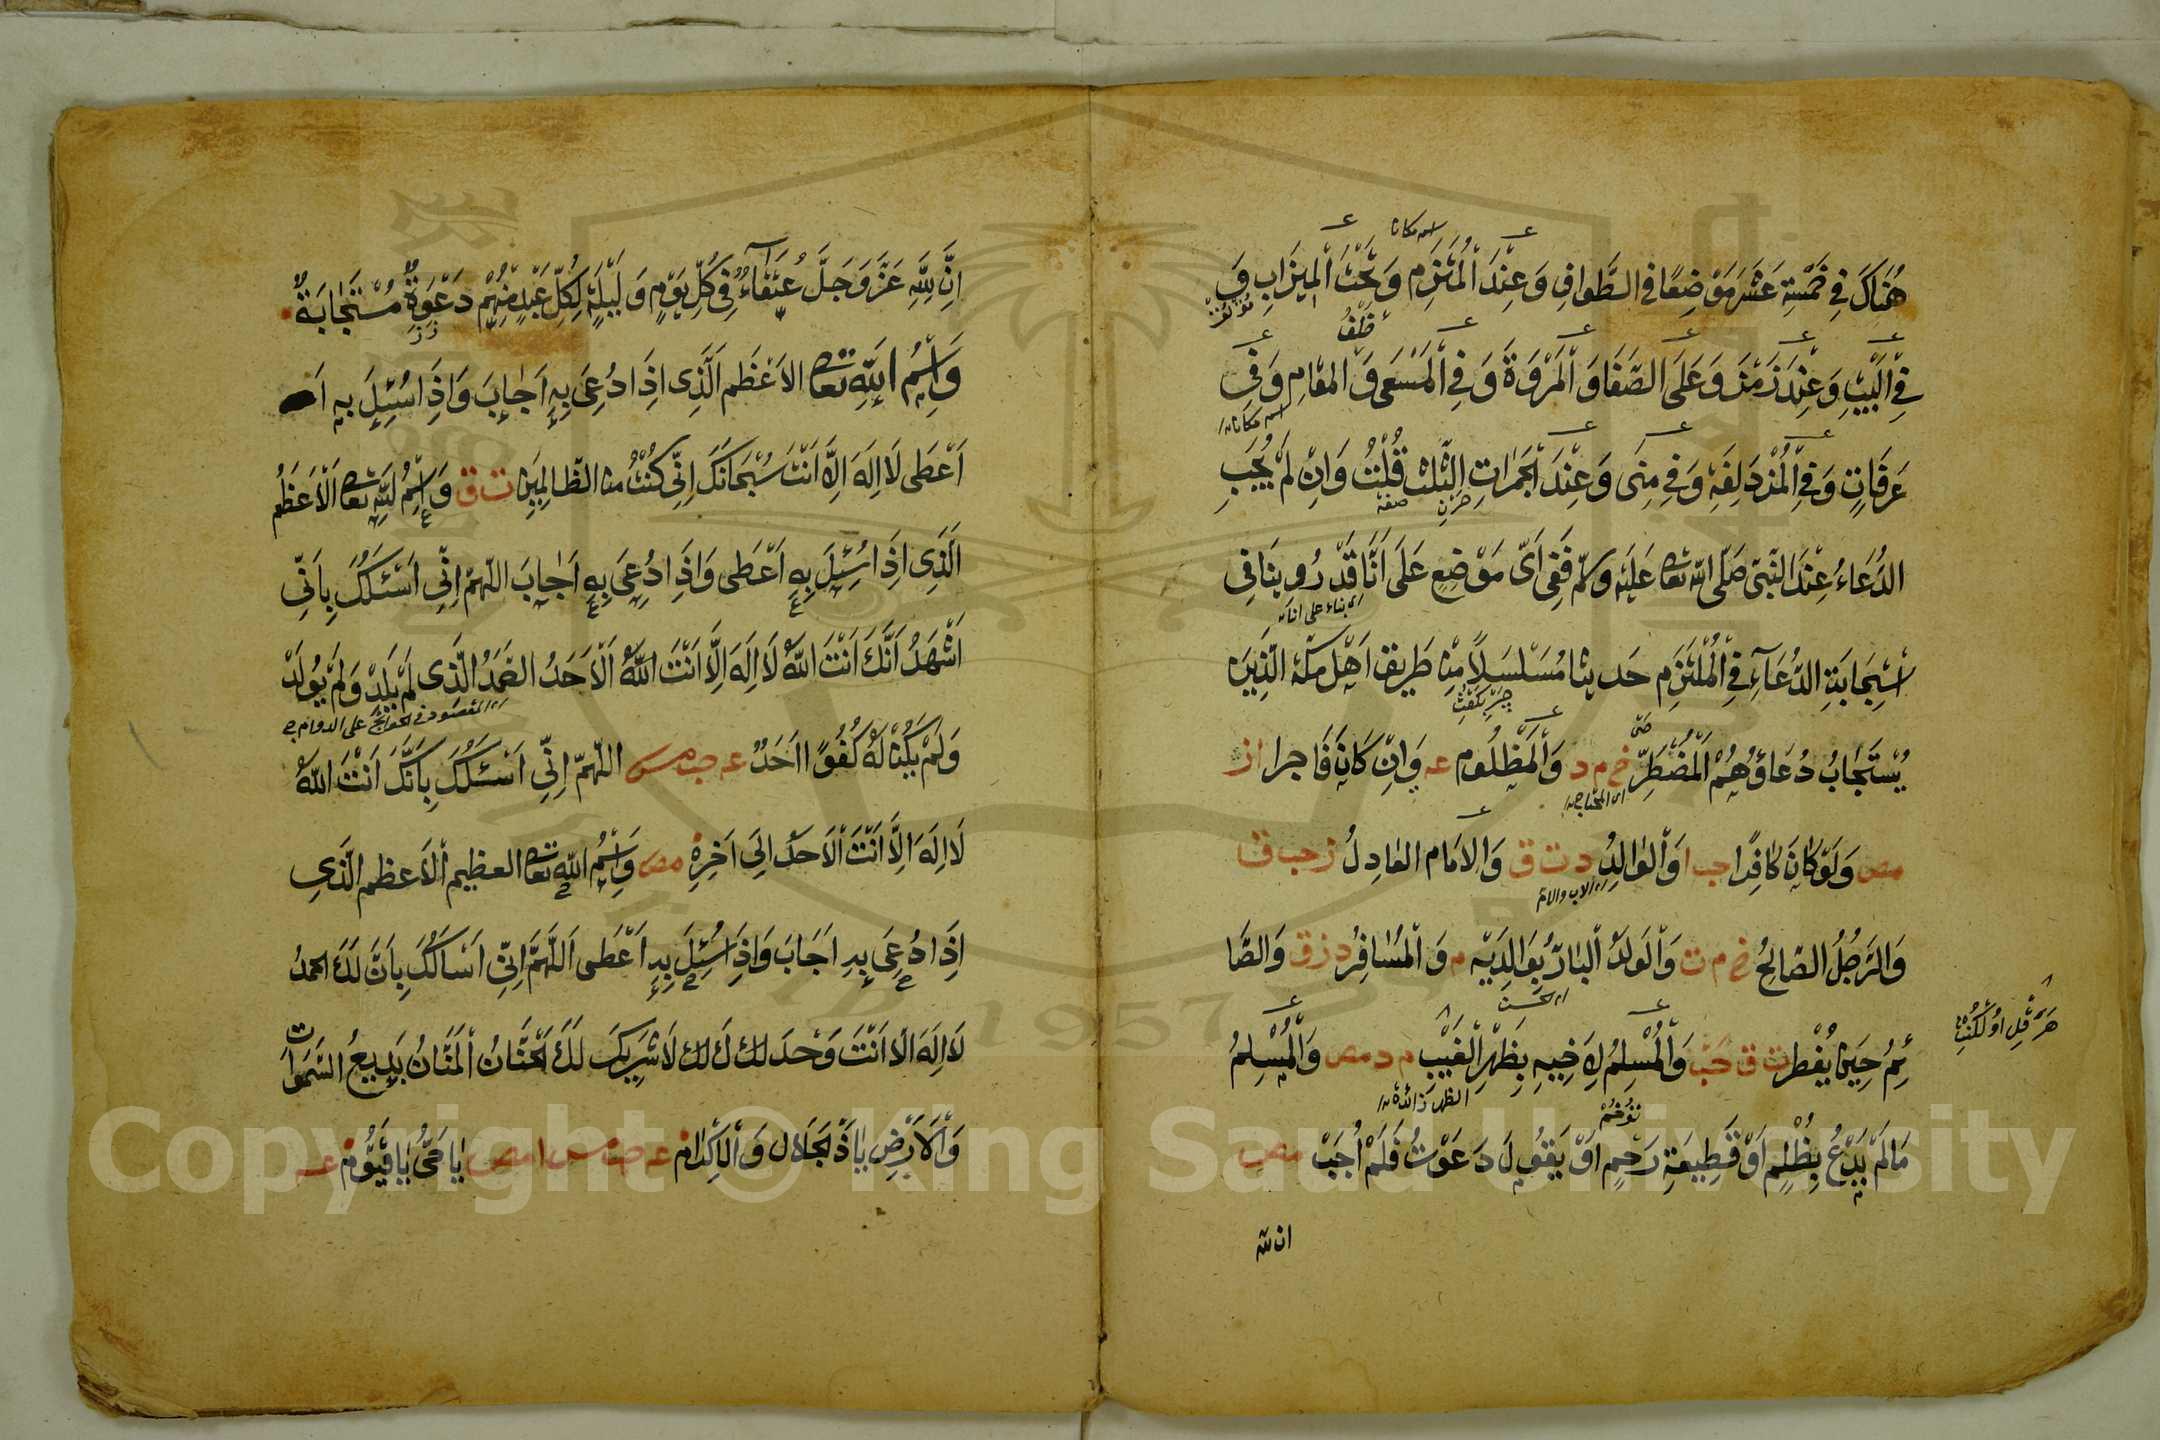 هُنَاكَ فِي خَمْسَةِ عَشَرَ مَوْضِعًا فِي الطَّوَافِ وَعِنْدَ الْمُلْتَزَمِ وَتَحْتَ الْمِيزَابِ وَ
فِي الْبَيْتِ وَعِنْدَ زَمْزَمَ وَعَلَى الصَّفَا وَالْمَرْوَةَ وَفِي الْمَسْعَى وَ خَلْفَ المقامِ وَفِي
عَرَفَاتٍ وَفِي الْمُزْدَلِفَةِ وَفِي مِنَى وَعِنْدَ الْجَمَرَاتِ الثَّلٰثِ قُلْتُ وَاِنْ لَمْ يُجَبِ
الدُّعَاءُ عِنْدَ النَّبِيّ صَلَّى اللّٰه تعا عَلَيْهِ وسلّم فَفِي اَيِّ مَوْضِعٍ عَلَى اَنَّا قَدْ رُوِينَا فِي
اسْتِجَابَةِ الدُّعَآءِ فِي الْمُلْتَزَمِ حَديثا مُسَلْسَلاً مِنْ طَرِيقِ اَهْلِ مكّةَ الَّذِينَ
يُسْتَجَابُ دُعَاؤُهُمْ اَلْمُضْطَرِّ خ م د وَالْمَظْلُوم عه وَاِنْ كَانَ فَاجرا از
مص وَلَوْ كَانَ كَافِرًا حب ا وَالْوَالِدُ د ت ق وَالاِمَام العَادِلُ ز حب ق
وَالرَّجُلُ الصَّالِحُ خ م ت وَالْوَلَدُ الْبَارّ بِوَالِدَيْهِ م وَالْمُسَافِرُ د ز ق وَالصَّا
ئِمُ حِينَ يُفْطِرُ ت ق حَبْ وَالْمُسْلِمُ لِاَخِيهِ بِظَهْرِ الْغَيْبِ م د مص وَالْمُسْلِمُ
مَا لَمْ يَدْعُ بِظُلْمٍ اَوْ قَطِيعَةِ رَحِمٍ اَوْ يَقُولَ دَعَوْتُ فَلَمْ اُجَبْ مص
ان للّٰه
اِنَّ لِلّٰهِ عَزَّ وَجَلَّ عُتَقَآءَ فِي كُلِّ يَوْمٍ وَلَيْلَةٍ لِكُلِّ عَبْدٍ مِنْهُمْ دَعْوَةٌ مُسْتَجَابَةٌ
وَاِسْمُ اللّٰهِ تعا الاَعْظَم اَلَّذِى اِذَا دُعِىَ بِهِ اَجَابَ وَاِذَا سُئِلَ بِهِ
اَعْطَى لَا اِلَهَ اِلاَّ اَنْتَ سُبْحَانَكَ اِنِّى كُنْتُ من الظَّالِمِينَ ت ق وَاِسْمُ اللّٰهِ تعا الْاَعْظَمُ
الَّذِى اِذَا سُئِلَ بِهِ اَعْطَى وَاِذَا دُعِىَ بِهِ اَجَابَ اللّٰهمّ اِنِّى اَسْئَلُكَ بِاَنِّى
اَشْهَدُ اَنَّكَ اَنْتَ اللّٰهُ لَا اِلَهَ اِلَّا اَنْتَ اللّٰهُ الْاَحَدُ الصَّمَدُ الَّذى لَمْ يَلِدْ وَلَمْ يُولَدْ
وَلَمْ يَكُنْ لَهُ كُفُوًا اَحَدٌ عه حب مس اللّٰهمّ اِنِّى اَسْئَلُكَ بِاَنَّكَ اَنْتَ اللّٰهُ
لَا اِلَهَ اِلَّا اَنْتَ الْاَحَدُ اِلَى اَخِرِهِ مص وَاِسْمُ اللّٰهِ تعا العظيم اَلاَعظم الَّذِى
اِذَا دُعِىَ بِهِ اَجَابَ وَاِذَا سُئِلَ بِهِ اَعْطَى اَللَّهُمَّ اِنِّى اَسْاَلُكَ بِاَنَّ لَكَ الحمدُ
لَا اِلَهَ الَّا اَنْتَ وَحْدَكَ لَا شَرِيكَ لَكَ الْحَنَّانُ الْمَنَّانُ بَدِيعُ السَّمَوَاتِ
وَالْاَرْضِ يَا ذَا الجَلَالِ وَالْاِكْرَامِ عه حب مس ا مص يَا حَىُّ يَا قَيُّومُ عه
Copyright © King Saud University
1957